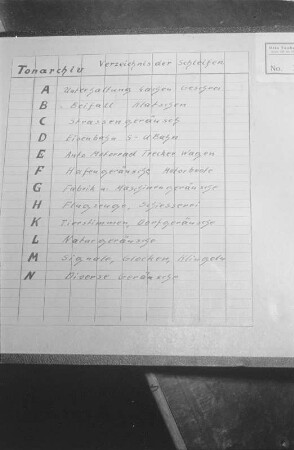 Tonarchiv Verzeichnis der Schleifen
No.
A Unterhaltung Lachen
B Beifall Klatschen
C Strassengeräusch
D Eisenbahn S- U Bahn
E Auto Motorrad Trecker Wagen
F Hafengeräusche Motorboote
G Fabrik u. Maschinengeräusche
H Flugzeuge, Schiesserei
K Tierstimmen, Dorfgeräusche
L Naturgeräusche
M Signale, Glocken, Klingeln
N Diverse Geräusche